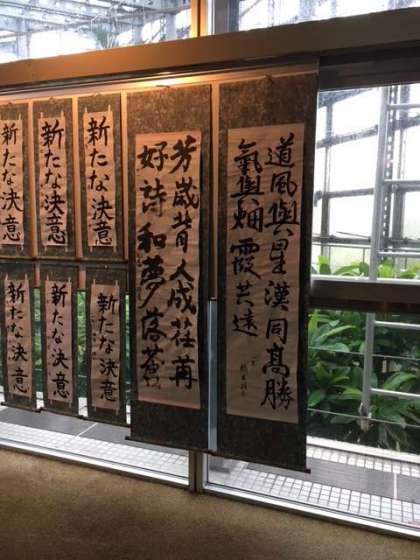 道風與星漢同高勝
氣與烟霞共遠
芳歳背人成荏苒
好詩和夢落蒼
新たな決意
新たな決意
新たな決意
新たな決意
新たな決意
新たな決意